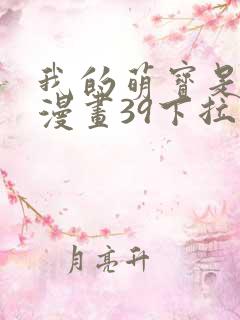 我的萌寶是
漫畫39下拉
月亮升